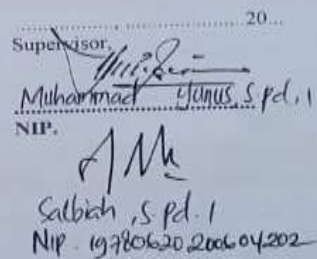 .................................. 20...
Supervisor,
Muhammad Yunus, S.pd.I
NIP.
Salbiah, S.Pd.I
Nip. 19780620200604202